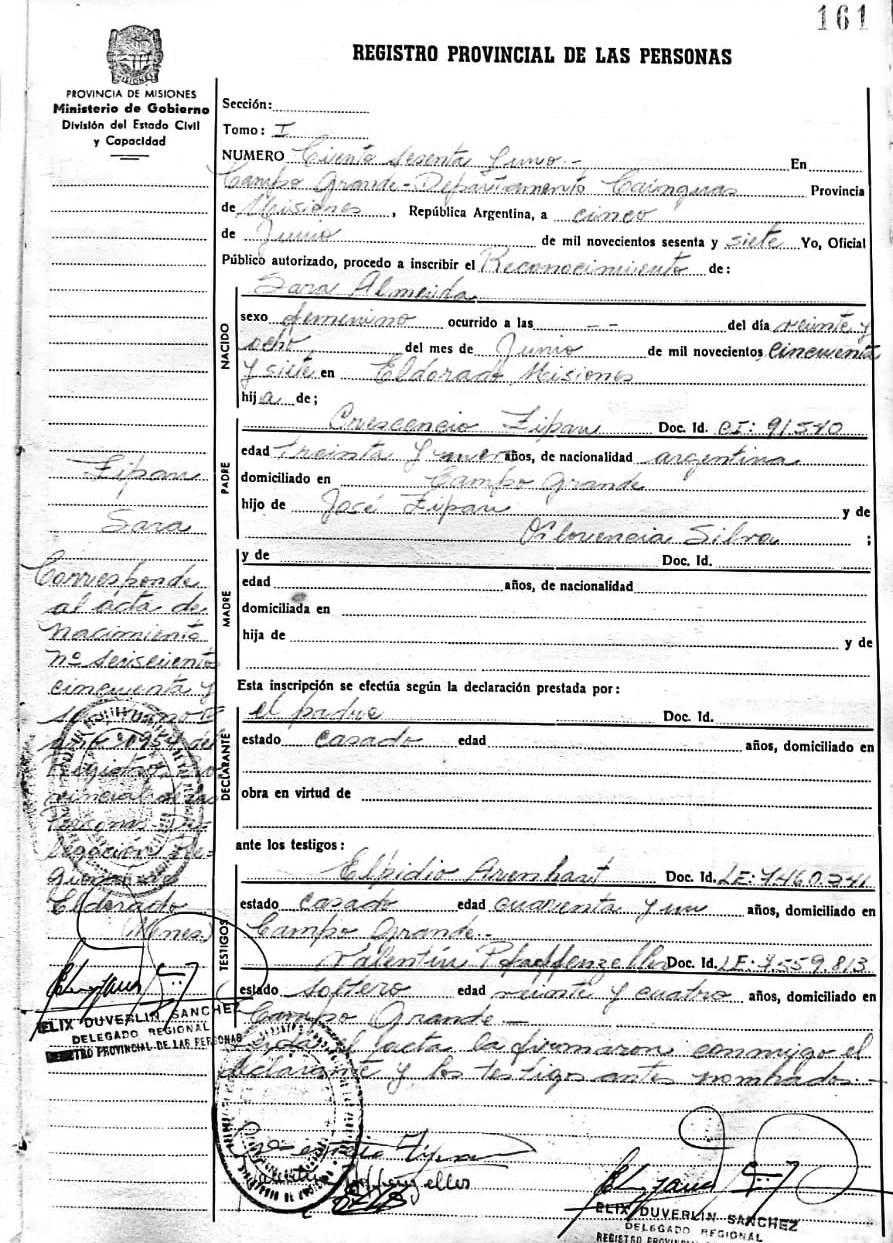 161
REGISTRO PROVINCIAL DE LAS PERSONAS
PROVINCIA DE MISIONES
Ministerio de Gobierno
División del Estado Civil
y Capacidad
Sección:
Tomo: I
NUMERO Ciento sesenta y uno.- En
Campo Grande-Departamento Cainguas Provincia
de Misiones, República Argentina, a cinco
de Junio de mil novecientos sesenta y siete Yo, Oficial
Público autorizado, procedo a inscribir el Reconocimiento de:
NACIDO
Sara Almeida
sexo femenino ocurrido a las -- del día veinte y
ocho del mes de Junio de mil novecientos cincuenta
y siete en Eldorado Misiones
hija de;
PADRE
Crescencio Zipan Doc. Id. CI: 91540
edad treinta y años, de nacionalidad argentina
domiciliado en Campo Grande
hijo de José Zipan y de
Florencia Silva ;
MADRE
y de Doc. Id.
edad años, de nacionalidad
domiciliada en
hija de y de
Esta inscripción se efectúa según la declaración prestada por:
DECLARANTE
el padre Doc. Id.
estado casado edad años, domiciliado en
obra en virtud de
ante los testigos:
TESTIGOS
Elpidio Arenhart Doc. Id. LE: 7.460.241
estado casado edad cuarenta y un años, domiciliado en
Campo Grande.-
Valentín Pfaffenzeller Doc. Id. LE: 7.559.813
estado soltero edad veinte y cuatro años, domiciliado en
Campo Grande.-
el acta la firmaron conmigo el
declarante y los testigos antes nombrados.-
Zipan
Sara
Corresponde
al acta de
nacimiento
nº seiscientos
cincuenta y
del
Registro Pro
vincial de las
Personas De
legación Re-
gional de
Eldorado
(Mnes)
ELIX DUVERLIN SANCHEZ
DELEGADO REGIONAL
REGISTRO PROVINCIAL DE LAS PERSONAS
ELIX DUVERLIN SANCHEZ
DELEGADO REGIONAL